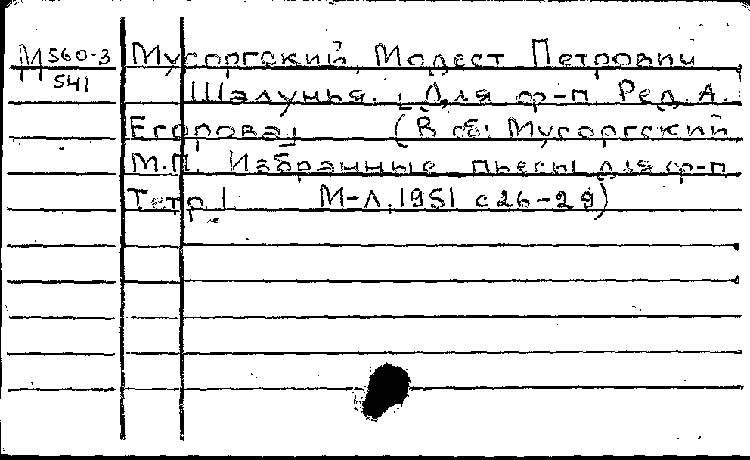 М 560-3 Мусоргский, Модест Петрович
541
Шалунья. [Для ф-п. Ред. А.
Егорова] (В сб: Мусоргский
М.П. Избранные пьесы для ф-п
Тетр I М-Л, 1951 с 26-29)